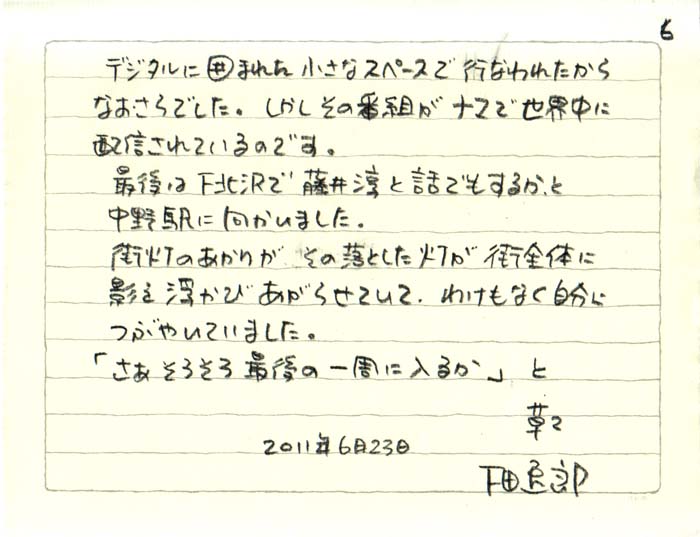 6
デジタルに囲まれた小さなスペースで行なわれたから
なおさらでした。しかしその番組がナマで世界中に
配信されているのです。
最後は下北沢で藤井淳と話でもするか、と
中野駅に向かいました。
街灯のあかりが その落とした灯が街全体に
影を浮かびあがらせていて、わけもなく自分に
つぶやいていました。
「さあそろそろ最後の一周に入るか」と
草々
2011年6月23日
下田逸郎